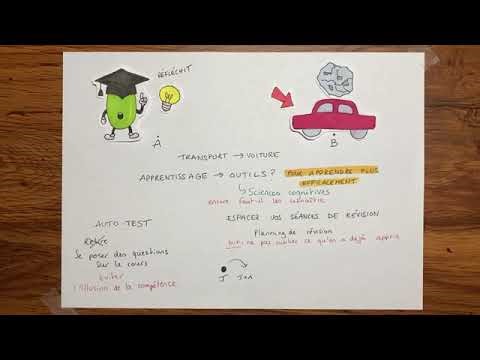 RÉFLÉCHIT
A
B
TRANSPORT → VOITURE
APPRENTISSAGE → OUTILS ? POUR APPRENDRE PLUS
EFFICACEMENT
↳ Sciences cognitives
encore faut-il les connaître
ESPACER VOS SÉANCES DE RÉVISION
Planning de révision
but: ne pas oublier ce qu'on a déjà appris
AUTO-TEST
Relire
Se poser des questions
sur le cours
éviter
l'illusion de la compétence
J J+1